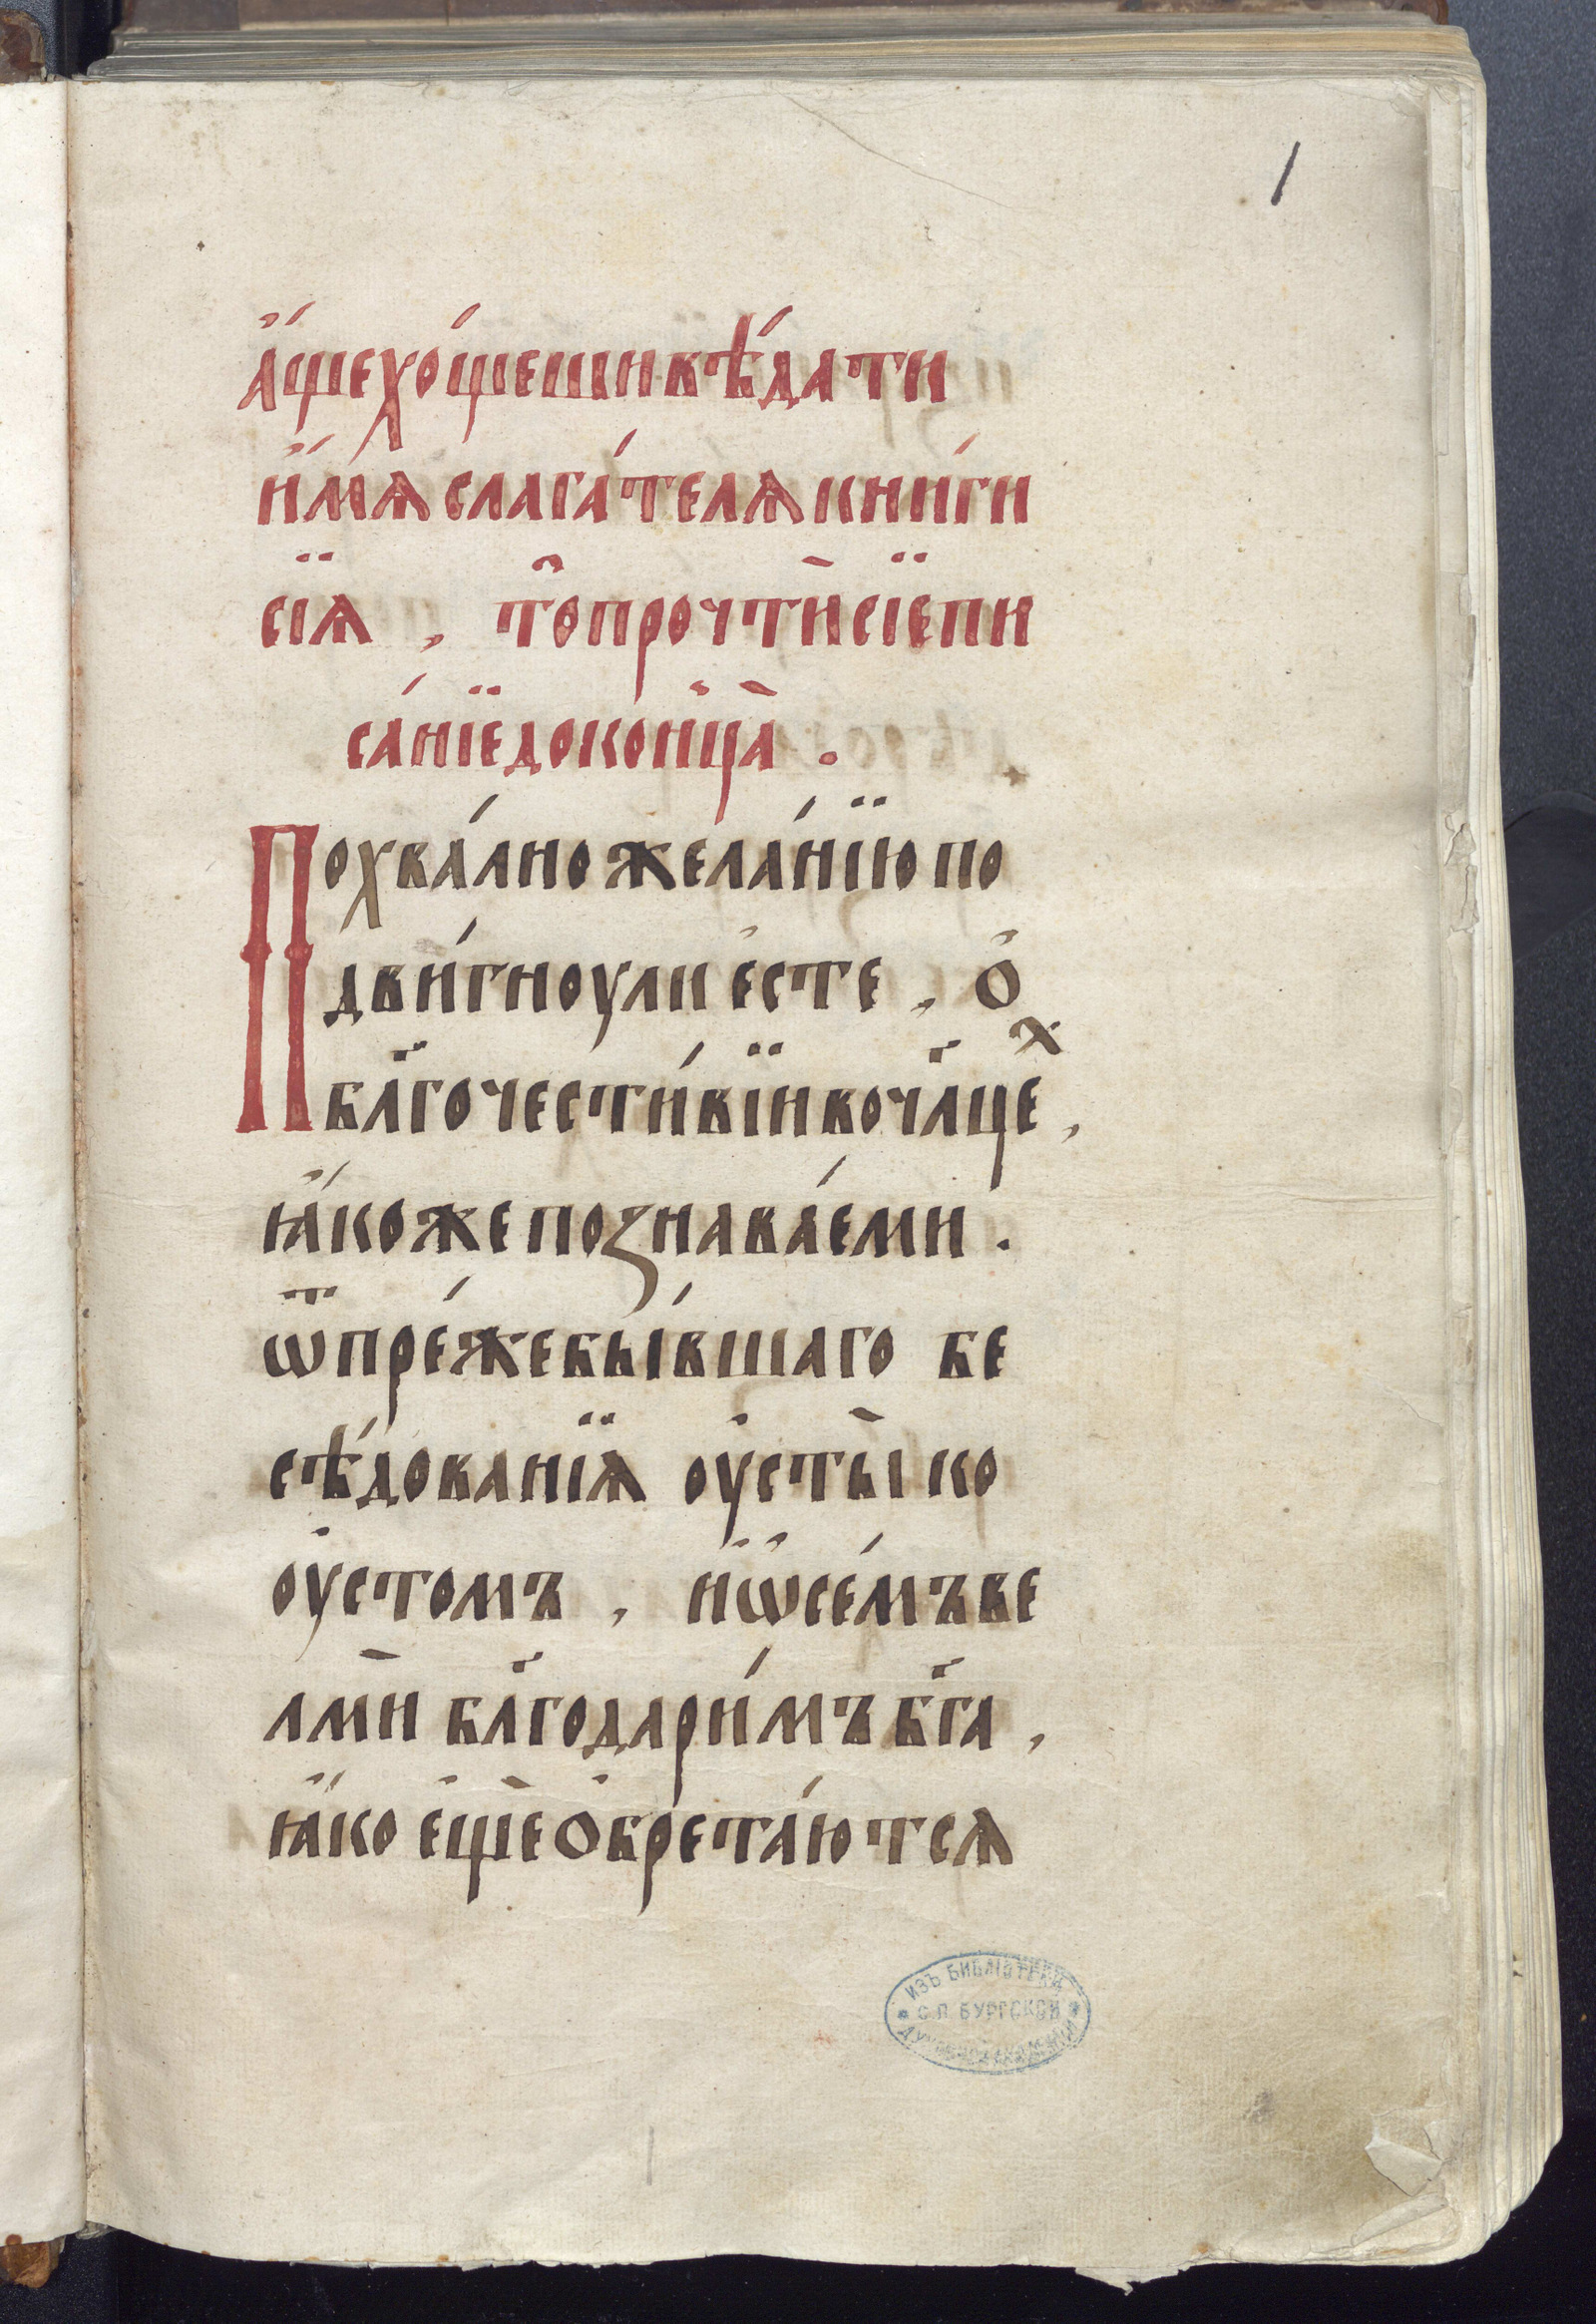 1
а҆́ще хо́щеши вѣ́дати
и҆́мѧ слага́телѧ кни́ги
сїѧ̀, то̑ прочтѝ сїѐ пи
са́нїе до конца̀.
Похва́лно жела́нїю по
дви́гноули є҆сте, ѻ҆
бл҃гочести́вїи во чл҃цеⷯ,
ꙗ҆́коже познава́еми.
ѿ пре́же бы́вшаго бе
сѣ́дованїѧ оу҆сты̀ ко
оу҆стомъ, и҆ ѡ҆ се́мъ ве
лмѝ бл҃годари́мъ бг҃а,
ꙗ҆́ко є҆щѐ ѻ҆брета́ютсѧ
ИЗЪ БИБЛІОТЕКИ
С.П.БУРГСКОЙ
ДУХОВНОЙ АКАДЕМІИ